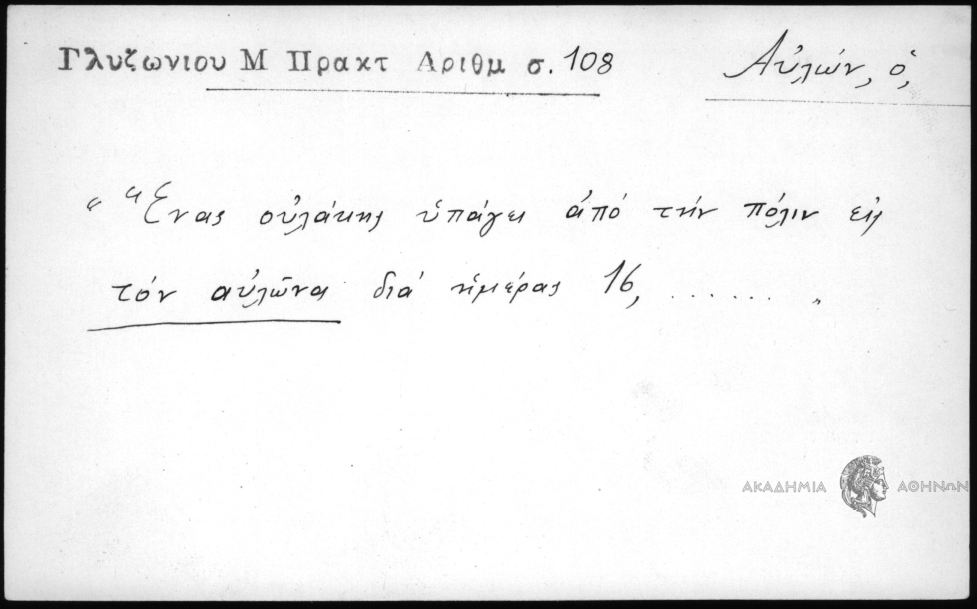 Γλυζωνιου Μ Πρακτ Αριθμ σ. 108
Αὐλών, ὁ,
" Ἕνας οὐλάκης ὑπάγει ἀπό τήν πόλιν εἰς
τόν αὐλῶνα διά ἡμέρας 16, ....... "
ΑΚΑΔΗΜΙΑ ΑΘΗΝΩΝ